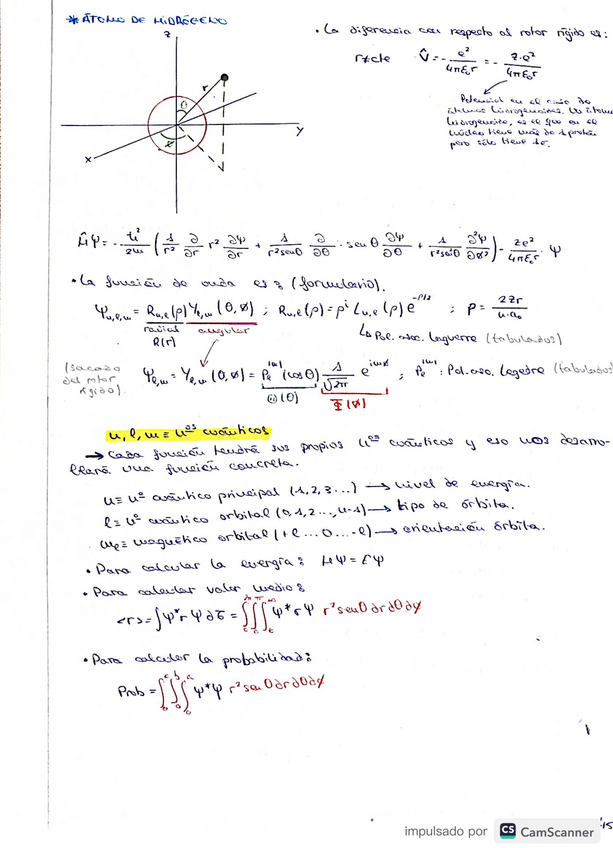 * ÁTOMO DE HIDRÓGENO
z
r
θ
y
x
• La diferencia con respecto al rotor rígido es:
r≠cte V̂ = - e²/4πε₀r = - z·e²/4πε₀r
Potencial en el caso de
átomos hidrogenoides. Un átomo
hidrogenoide, es el que en el
núcleo tiene más de 1 protón
pero sólo tiene 1e⁻.
Ĥψ = - ħ²/2m (1/r² ∂/∂r r² ∂ψ/∂r + 1/r²senθ ∂/∂θ · senθ ∂ψ/∂θ + 1/r²sen²θ ∂²ψ/∂ø²) - ze²/4πε₀r ψ
• La función de onda es: (formulario).
Ψn,l,m = Rn,l(ρ) Yl,m(θ,ø) ; Rn,l(ρ) = ρˡ Ln,l(ρ) e^(-ρ/2) ; ρ = 2Zr/n·a₀
radial angular
R(r)
↳ Pol. asoc. Laguerre (tabulados)
(sacado del rotor rígido).
Ψl,m = Yl,m(θ,ø) = Pl^|m|(cosθ) 1/√2π e^(imø) ; Pl^|m|: Pol. aso. Legedre (tabulados)
Θ(θ) Φ(ø)
n, l, m ≡ nºˢ cuánticos
→ Cada función tendrá sus propios nºˢ cuánticos y eso nos desarro-
llará una función concreta.
n ≡ nº cuántico principal (1,2,3...) → nivel de energía.
l ≡ nº cuántico orbital (0,1,2...,n-1) → tipo de órbita.
ml ≡ magnético orbital (+l...0...-l) → orientación órbita.
• Para calcular la energía: Hψ = Eψ
• Para calcular valor medio:
<r> = ∫ψ*rψ∂τ = ∫∫∫ψ*rψ r²senθ∂r∂θ∂ø
• Para calcular la probabilidad:
Prob = ∫∫∫ψ*ψ r²senθ∂r∂θ∂ø
1
impulsado por CS CamScanner